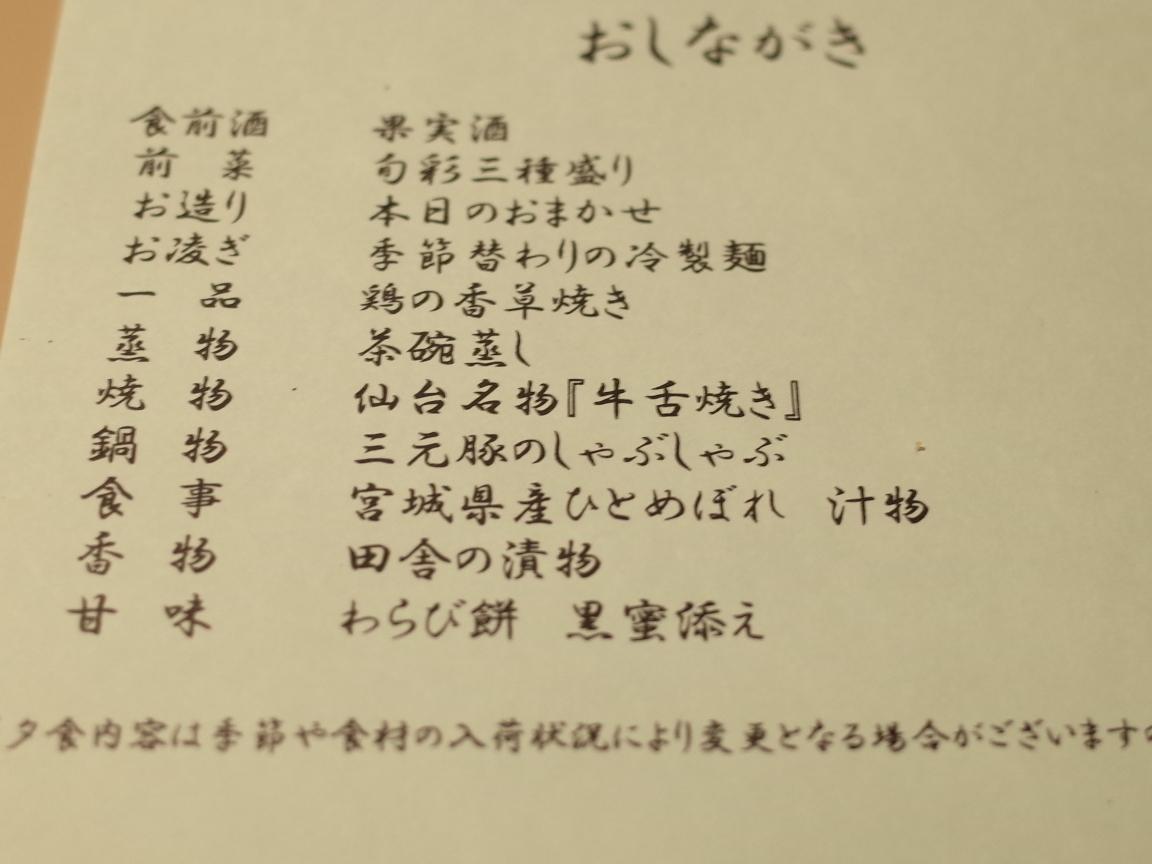 おしながき
食前酒　果実酒
前　菜　旬彩三種盛り
お造り　本日のおまかせ
お凌ぎ　季節替わりの冷製麺
一　品　鶏の香草焼き
蒸　物　茶碗蒸し
焼　物　仙台名物『牛舌焼き』
鍋　物　三元豚のしゃぶしゃぶ
食　事　宮城県産ひとめぼれ　汁物
香　物　田舎の漬物
甘　味　わらび餅　黒蜜添え
夕食内容は季節や食材の入荷状況により変更となる場合がございますの